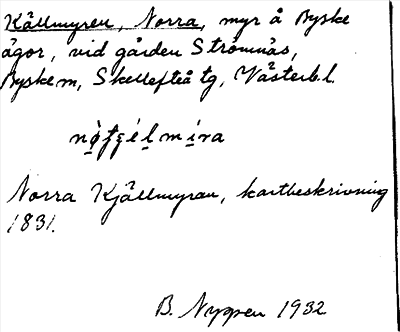 Källmyren, Norra, myr å Byske
ägor, vid gården Strömnäs,
Byske sn, Skellefteå tg, Västerb. l.
Norra Kjällmyran, kartbeskrivning
1831.
B. Nyppen 1932